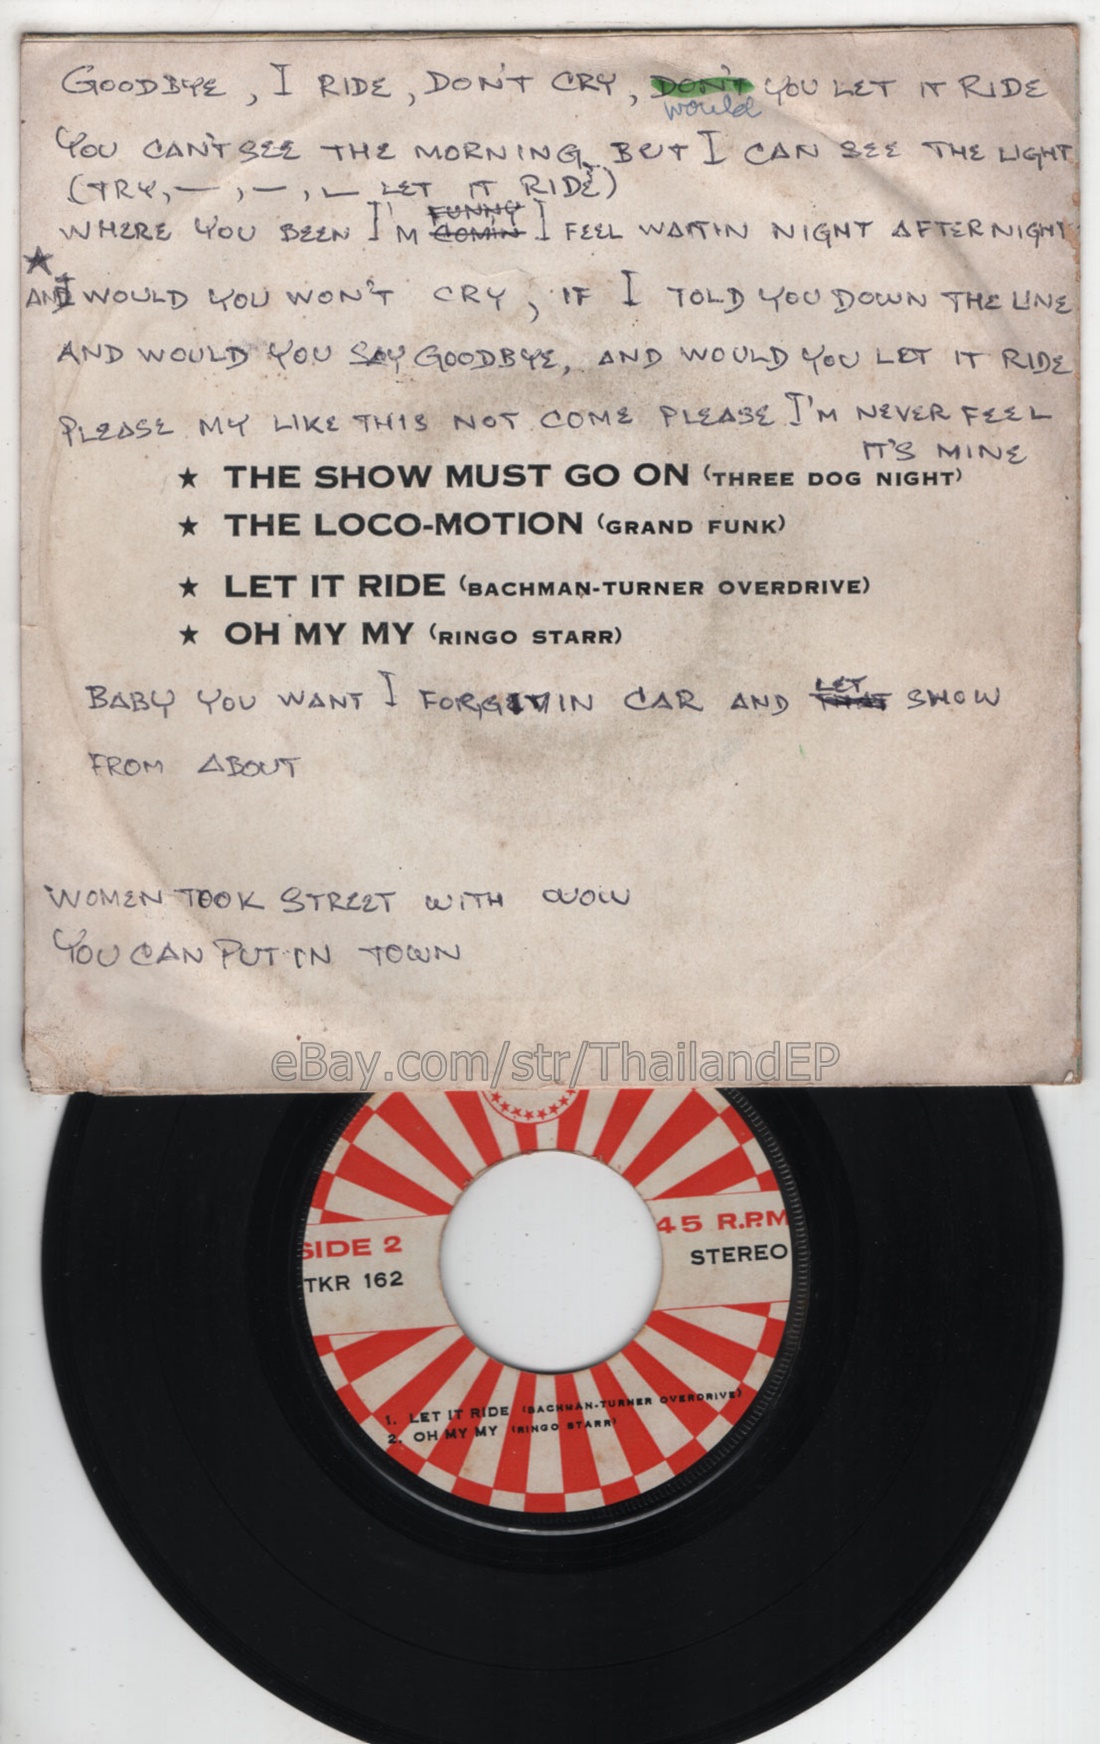 GOODBYE, I RIDE, DON'T CRY, DON'T YOU LET IT RIDE
would
YOU CAN'T SEE THE MORNING, BUT I CAN SEE THE LIGHT
(TRY, — , — , — LET IT RIDE)
FUNNY
WHERE YOU BEEN I'M COMIN I FEEL WAITIN NIGHT AFTER NIGHT
★
AND WOULD YOU WON'T CRY, IF I TOLD YOU DOWN THE LINE
AND WOULD YOU SAY GOODBYE, AND WOULD YOU LET IT RIDE
PLEASE MY LIKE THIS NOT COME PLEASE I'M NEVER FEEL
IT'S MINE
★ THE SHOW MUST GO ON (THREE DOG NIGHT)
★ THE LOCO-MOTION (GRAND FUNK)
★ LET IT RIDE (BACHMAN-TURNER OVERDRIVE)
★ OH MY MY (RINGO STARR)
LET
BABY YOU WANT I IN CAR AND THAT SHOW
FROM ABOUT
WOMEN TOOK STREET WITH
YOU CAN PUT IN TOWN
eBay.com/str/ThailandEP
SIDE 2
45 R.P.M
TKR 162
STEREO
1. LET IT RIDE (BACHMAN-TURNER OVERDRIVE)
2. OH MY MY (RINGO STARR)